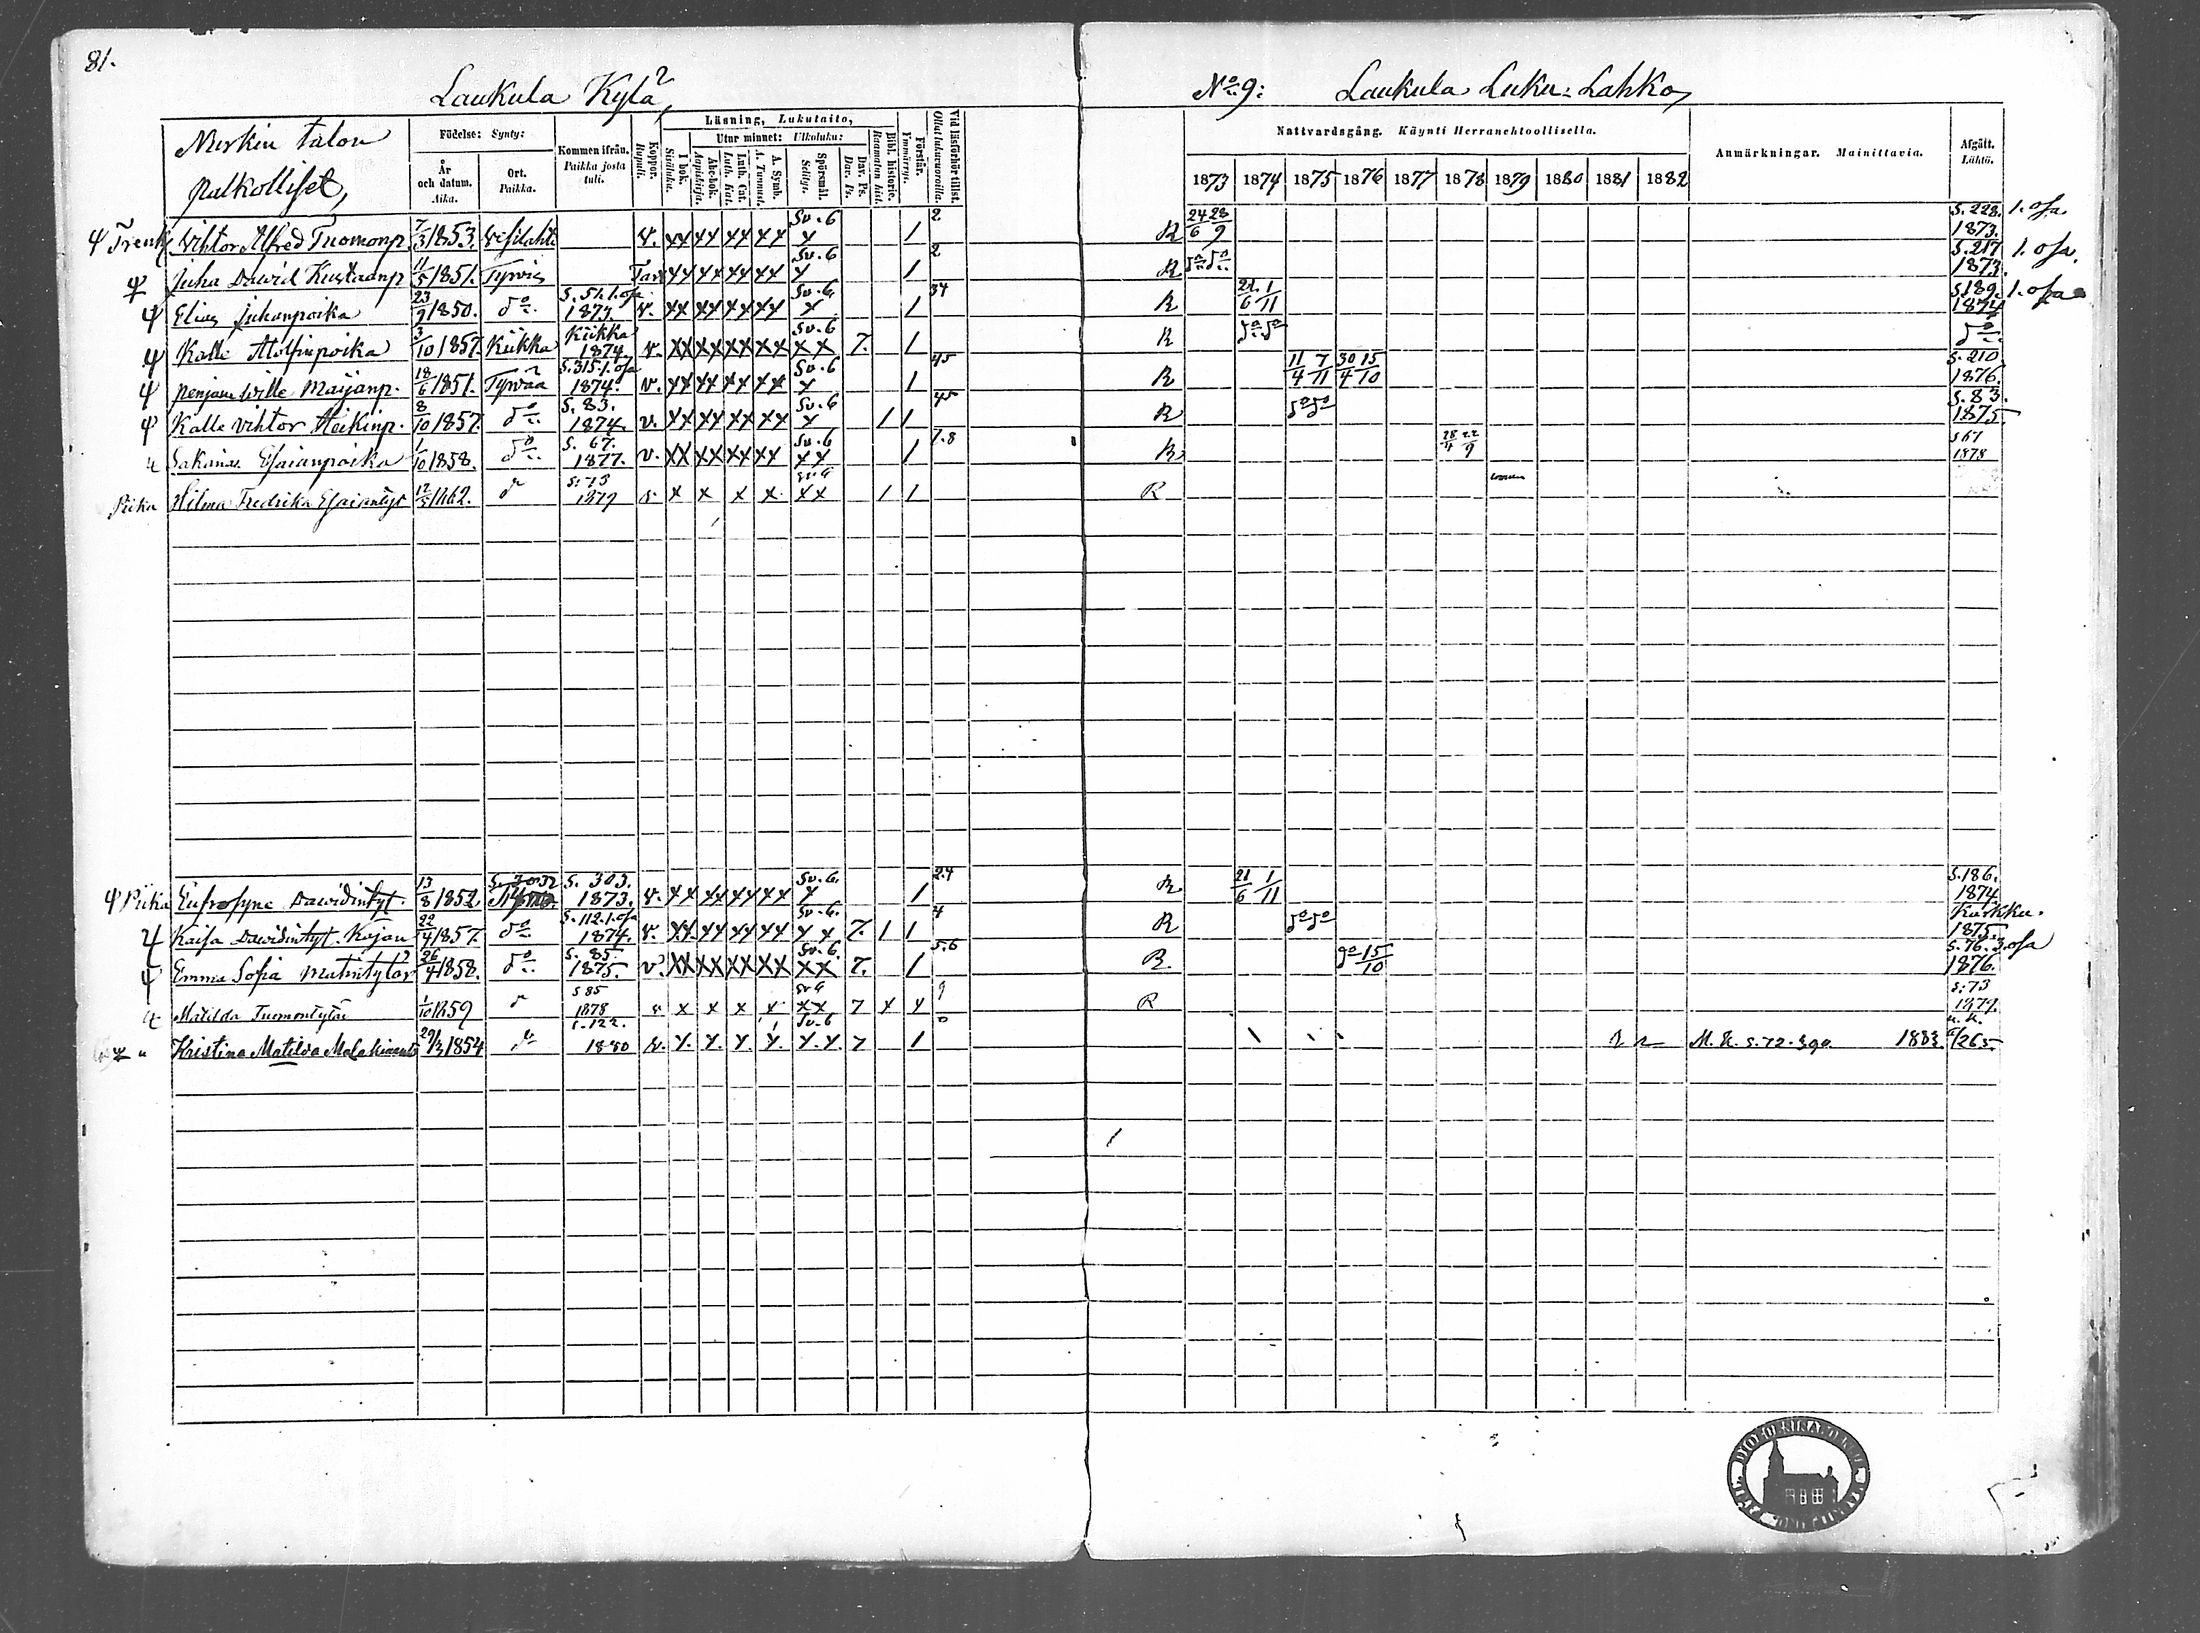 81.
Laukula Kylä,
No 9: Laukula Luku-Lahko,
Nurkin talon
palkolliset,
Födelse: Synty:
År och datum. Aika.
Ort. Paikka.
Kommen ifrån. Paikka josta tuli.
Koppor. Rupuli.
Läsning, Lukutaito,
I bok. Sisäluku.
Utur minnet: Ulkoluku:
Abc-bok. Aapiskirja.
Luth. Cat. Luth. Kat.
A. Symb. A. Tunnust.
Spörsmål. Selitys.
Dav. Ps. Dav. Ps.
Bibl. historie. Raamatun hist.
Förstår. Ymmärrys.
Vid läsförhör tillst. Ollut lukuvuoroilla.
Nattvardsgång. Käynti Herranehtoollisella.
1873 1874 1875 1876 1877 1878 1879 1880 1881 1882
Anmärkningar. Mainittavia.
Afgått. Lähtö.
Trenk Vihtor Alfred Tuomonp. 7/3 1853. Vesilahti v. xx xx xx xx Sv. 6 x 1 2 R 24/6 28/9 S. 228. 1873. 1. osa
Juha Dawid Kustaanp 11/5 1851. Tyrvis xx xx xx xx Sv. 6 x 1 2 R do do S. 217 1873. 1. osa.
Elias Juhanpoika 23/9 1850. do S. 51. 1. osa 1873. v. xx xx xx xx Sv. 6. x 1 34 R 21/6 1/11 S. 189. 1874 1. osa
Kalle Adolfinpoika 3/10 1857. Kiikka Kiikka 1874. v. xx xx xx xx Sv. 6 xx 7. 1 R do do do
Penjam Wille Maijanp. 18/6 1851. Tyrvää S. 315. 1. osa 1874. v. xx xx xx xx Sv. 6 x 1 45 R 11/4 7/11 30/4 15/10 S. 210. 1876.
Kalle Vihtor Heikinp. 8/10 1857. do S. 83. 1874. v. xx xx xx xx Sv. 6 x 1 1 45 R do do S. 83. 1875.
Sakarias Esaianpoika 1/10 1858. do S. 67. 1877. v. xx xx xx xx Sv. 6 xx 1 7.8 R 28/4 22/9 S 67 1878
Piika Hilma Fredrika Esaiantyt 1862. do S: 73 1879 v x x x x xx 1 1 R
Piika Eufrosyne Dawidintyt. 13/8 1852. S. 303. 1873. v. xx xx xx xx Sv. 6. x 1 2.4 R 21/6 1/11 S. 186. 1874.
Kaisa Dawidintyt. Kajan 22/4 1857. do S. 112. 1. osa 1874. v. xx xx xx xx Sv. 6. xx 7. 1 1 4 R do do Karkku. 1875.
Emma Sofia Matintytär 26/4 1858. do S. 85. 1875. v. xx xx xx xx Sv. 6. xx 7. 1 5.6 R. do 15/10 S. 76. 3. osa 1876.
Matilda Tuomontytär 1/10 1859 do S 85 1878 v x x x x xx 7 x x 9 R S: 73 1879.
Kristina Matilda Malakiaant 29/3 1854 do S. 122. 1880 v. x. x. x. x. Sv. 6 x. x. 7 1 M. K. s. 72. 1883